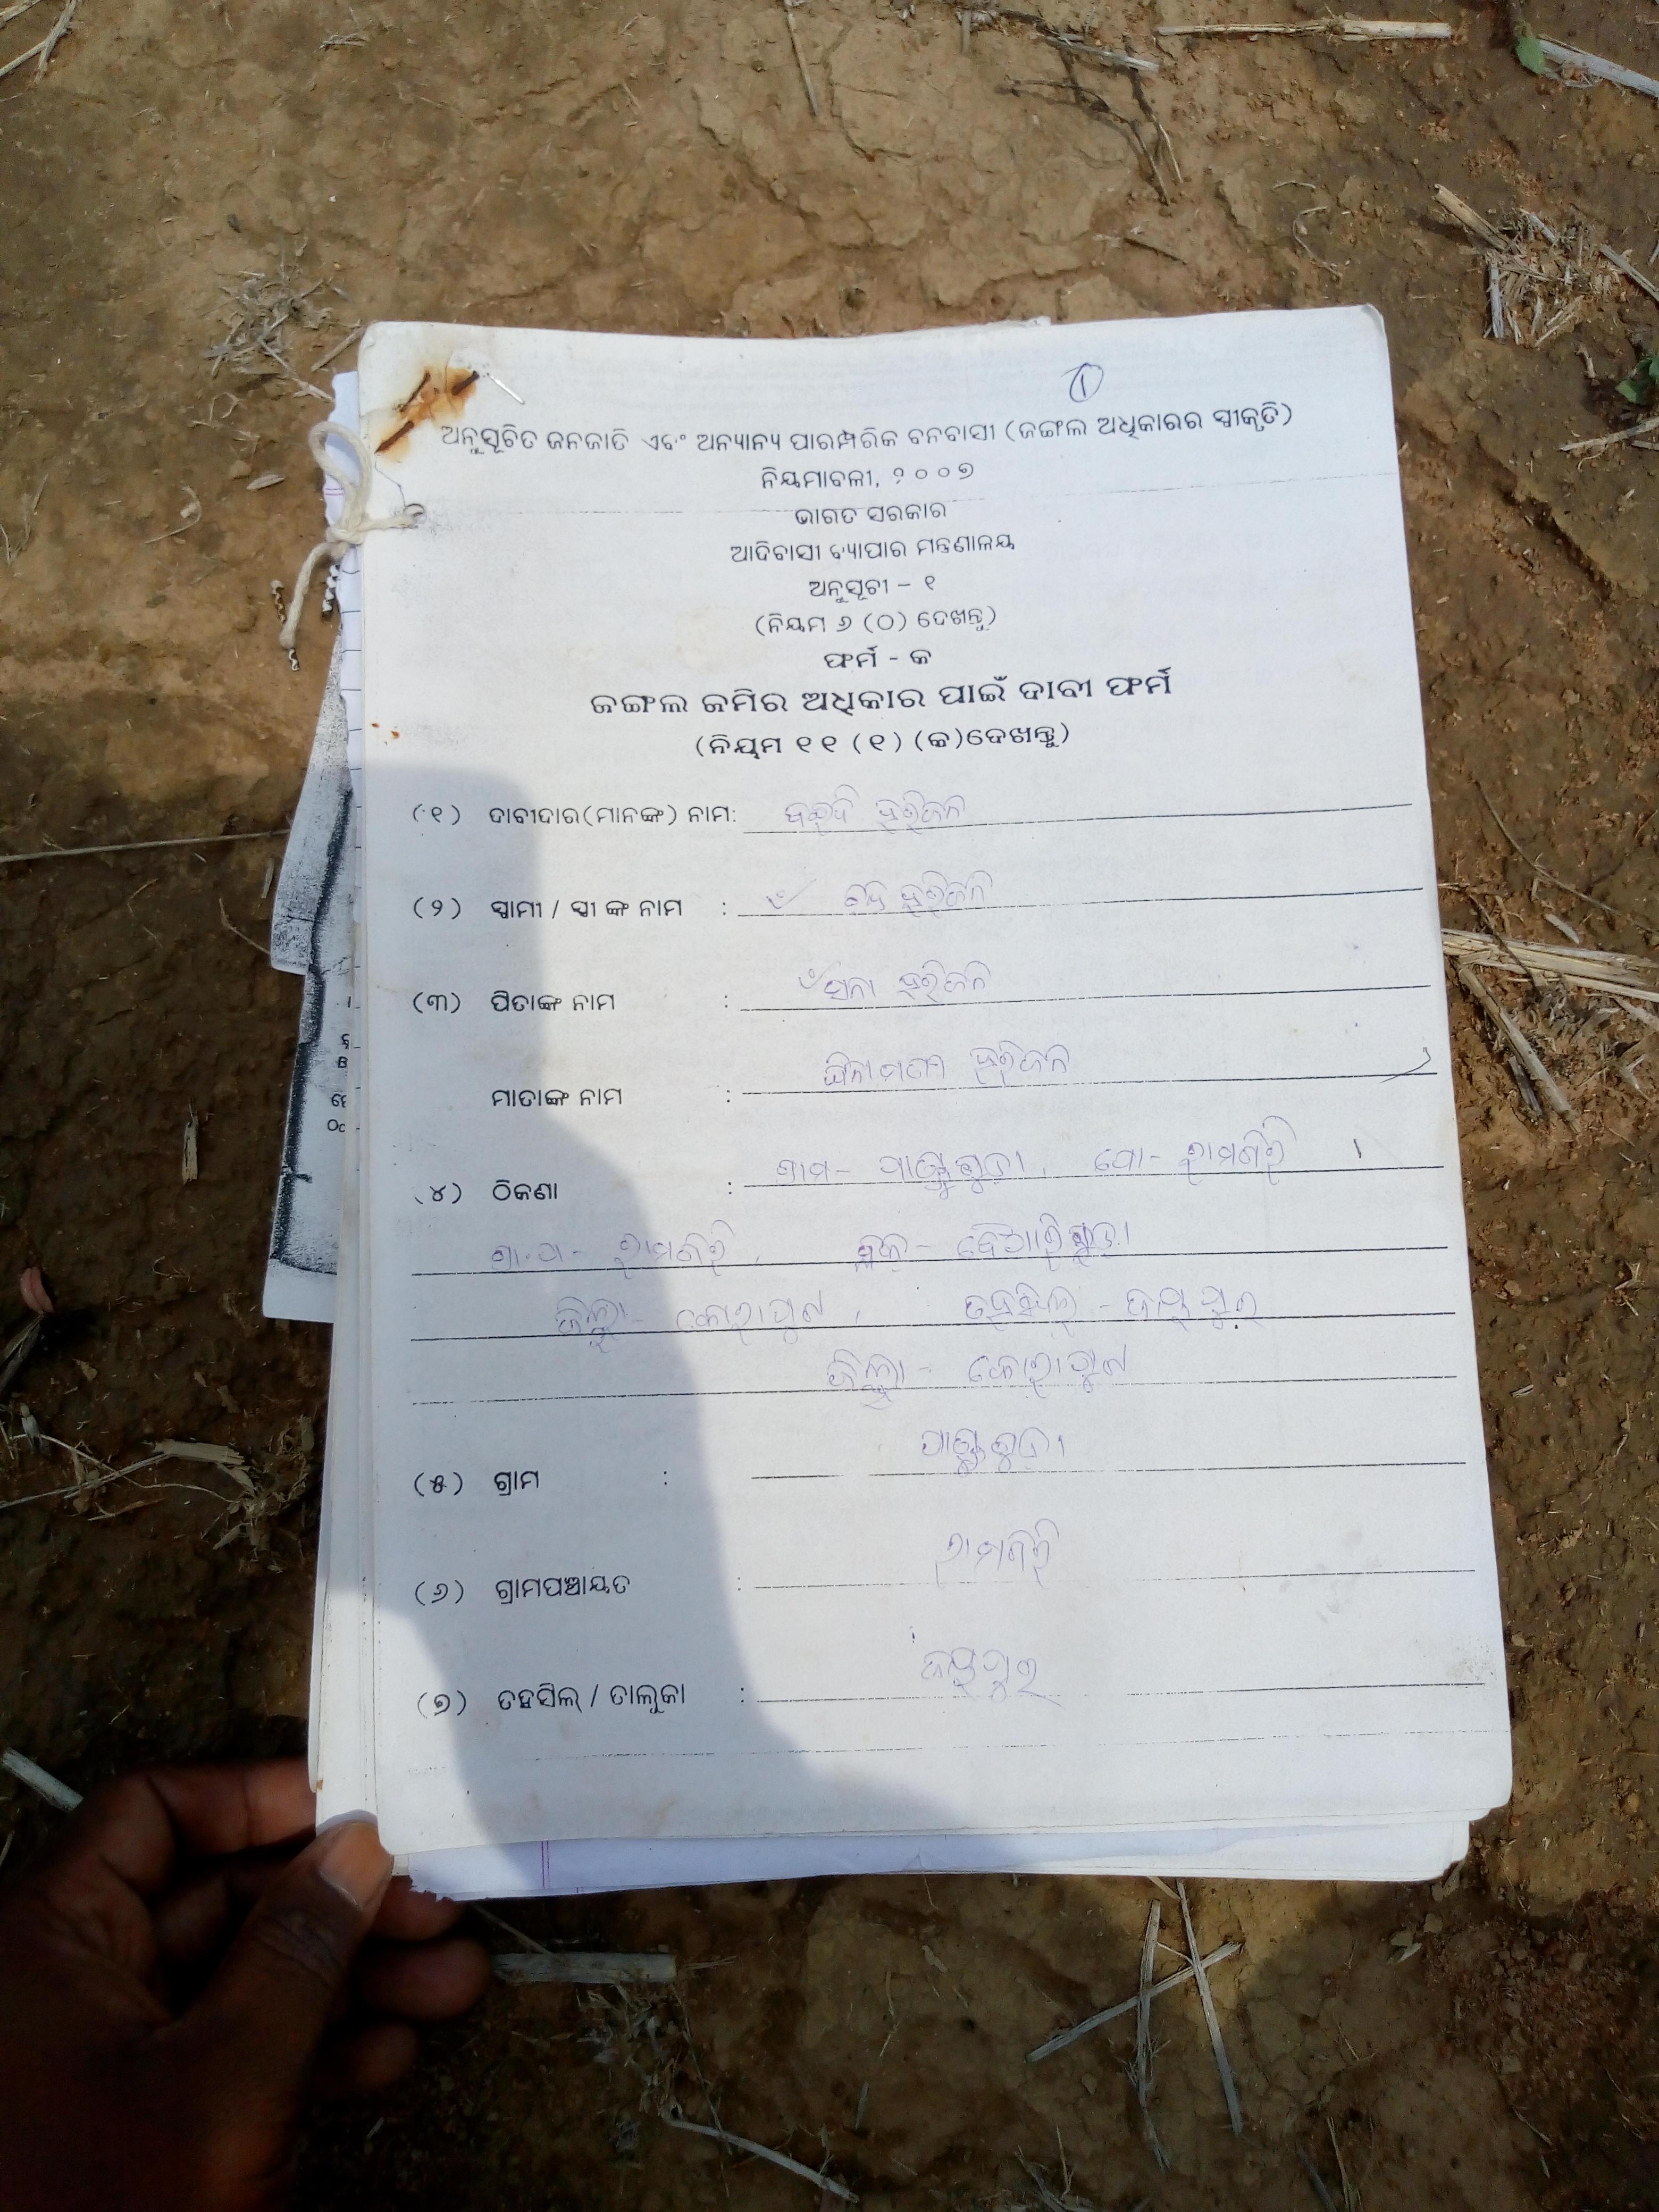 ୧
ଅନୁସୂଚିତ ଜନଜାତି ଏବଂ ଅନ୍ୟାନ୍ୟ ପାରମ୍ପରିକ ବନବାସୀ (ଜଙ୍ଗଲ ଅଧିକାରର ସ୍ୱୀକୃତି)
ନିୟମାବଳୀ, ୨୦୦୭
ଭାରତ ସରକାର
ଆଦିବାସୀ ବ୍ୟାପାର ମନ୍ତ୍ରଣାଳୟ
ଅନୁସୂଚୀ – ୧
(ନିୟମ ୬ (ଠ) ଦେଖନ୍ତୁ)
ଫର୍ମ - କ
ଜଙ୍ଗଲ ଜମିର ଅଧିକାର ପାଇଁ ଦାବୀ ଫର୍ମ
(ନିୟମ ୧୧ (୧) (କ)ଦେଖନ୍ତୁ)
(୧) ଦାବୀଦାର(ମାନଙ୍କ) ନାମ: ହରିଜନ
(୨) ସ୍ୱାମୀ / ସ୍ତ୍ରୀ ଙ୍କ ନାମ : ହରିଜନ
(୩) ପିତାଙ୍କ ନାମ : ହରିଜନ
ମାତାଙ୍କ ନାମ : ହରିଜନ
(୪) ଠିକଣା : ଗ୍ରାମ- ପୋ- ରାମଗିରି
ଗ୍ରା.ପ- ରାମଗିରି, ବ୍ଲକ- ବୈପାରିଗୁଡା
ଜିଲ୍ଲା- କୋରାପୁଟ, ତହସିଲ - ଜୟପୁର
ଜିଲ୍ଲା - କୋରାପୁଟ
(୫) ଗ୍ରାମ :
(୬) ଗ୍ରାମପଞ୍ଚାୟତ : ରାମଗିରି
(୭) ତହସିଲ୍ / ତାଲୁକା : ଜୟପୁର